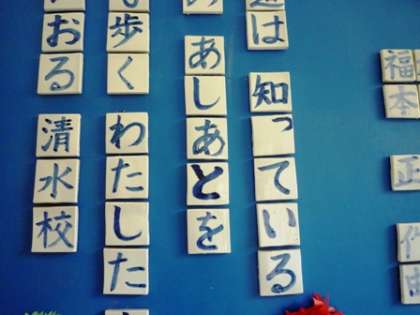 福本 正
は 知っている
あしあとを
歩く わたした
おる 清水校